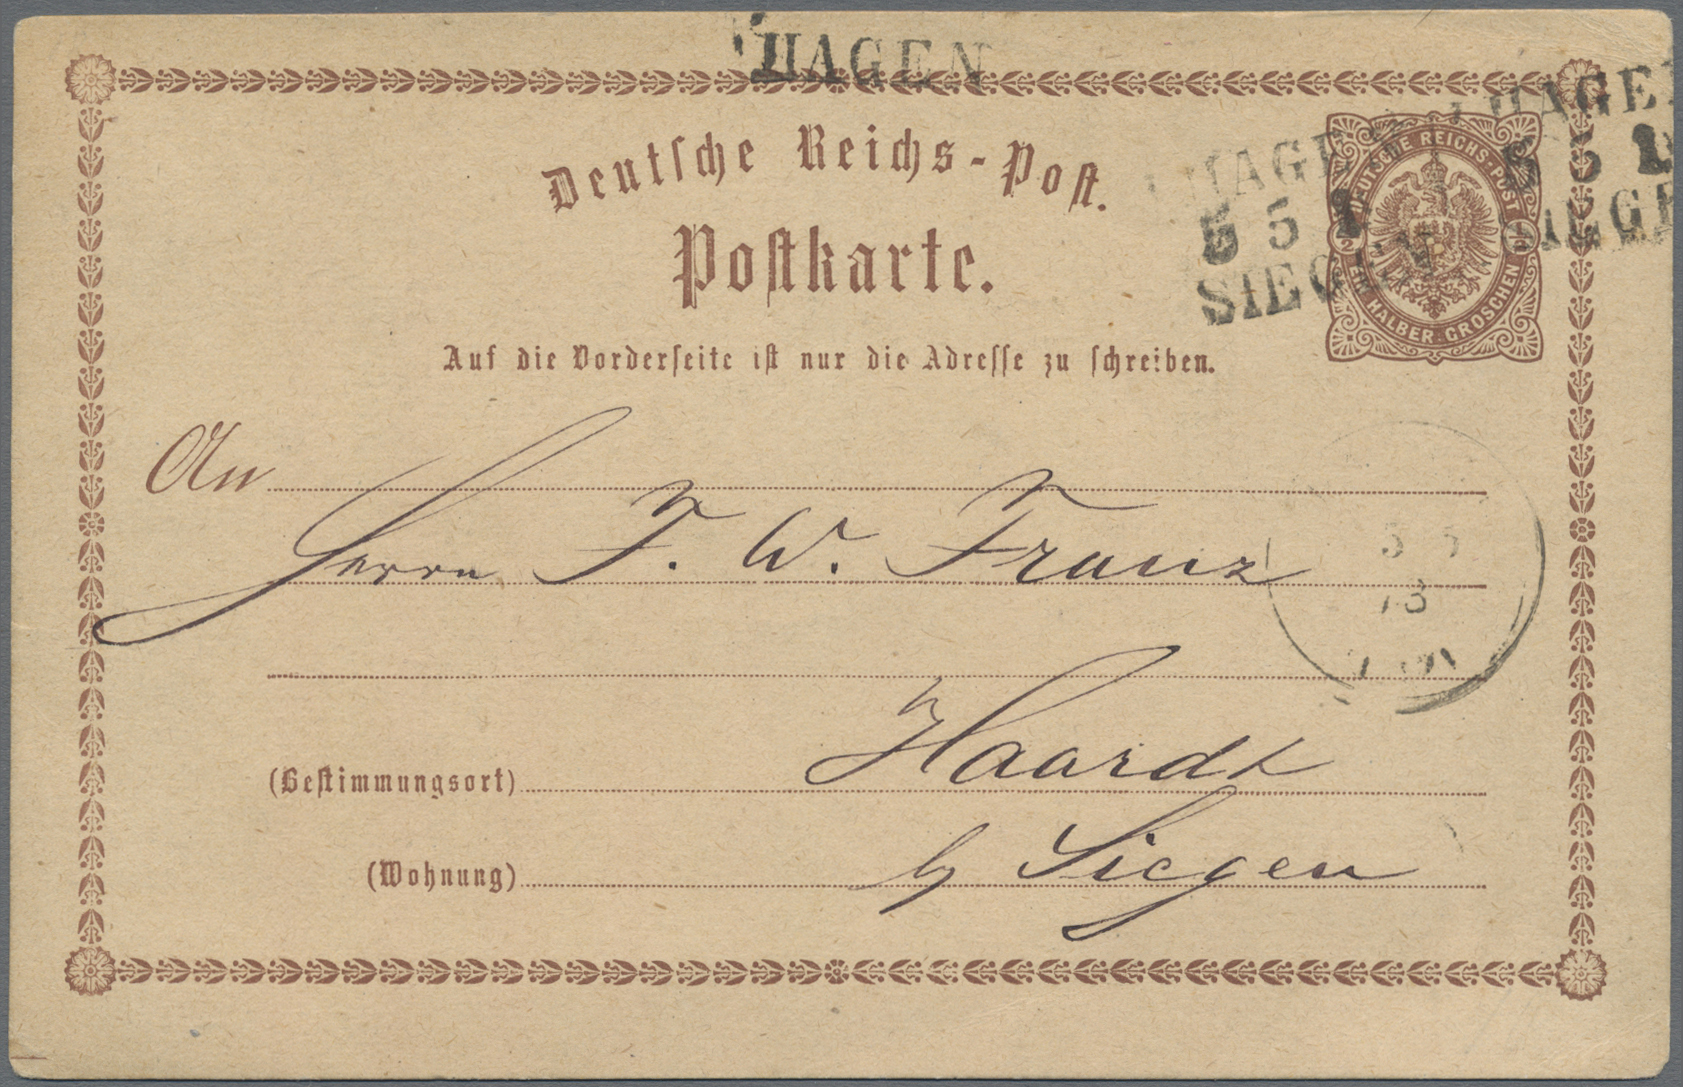 HAGEN
HAGEN
5 5 1
SIEGEN
HAGE
5 5 1
SIEGE
Deutsche Reichs-Post.
DEUTSCHE REICHS-POST
1/2
EIN HALBER GROSCHEN
Postkarte.
Auf die Vorderseite ist nur die Adresse zu schreiben.
An
Herrn F. W. Franz
5 5
73
Haardt
(Bestimmungsort)
by Siegen
(Wohnung)